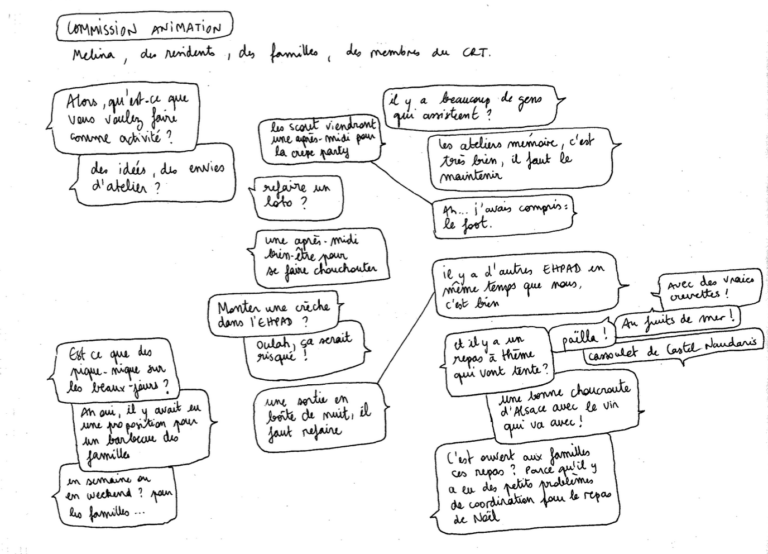 COMMISSION ANIMATION
Melina, des residents, des familles, des membres du CRT.
Alors, qu'est-ce que
vous voulez faire
comme activité ?
des idées, des envies
d'atelier ?
les scout viendront
une après-midi pour
la crepe party
il y a beaucoup de gens
qui assistent ?
les ateliers mémoire, c'est
très bien, il faut le
maintenir
Ah... j'avais compris :
le foot.
refaire un
loto ?
une après-midi
bien-être pour
se faire chouchouter
Monter une crèche
dans l'EHPAD ?
Oulah, ça serait
risqué !
une sortie en
boîte de nuit, il
faut refaire
il y a d'autres EHPAD en
même temps que nous,
c'est bien
et il y a un
repas à thème
qui vont tente ?
paëlla !
Au fruits de mer !
Avec des vraies
crevettes !
cassoulet de Castel Naudaris
une bonne choucroute
d'Alsace avec le vin
qui va avec !
C'est ouvert aux familles
ces repas ? Parce qu'il y
a eu des petits problèmes
de coordination pour le repas
de Noël
Est ce que des
pique-nique sur
les beaux-jours ?
Ah oui, il y avait eu
une proposition pour
un barbecue des
familles
en semaine ou
en weekend ? pour
les familles...